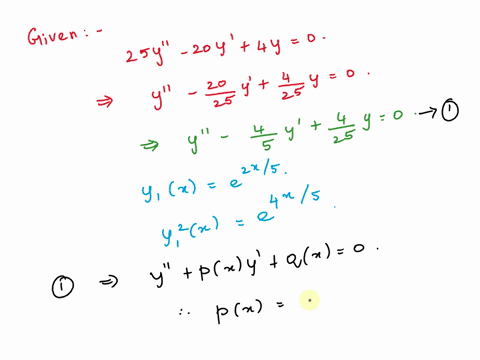 Given :-
25y'' - 20y' + 4y = 0.
⇒ y'' - 20/25 y' + 4/25 y = 0.
⇒ y'' - 4/5 y' + 4/25 y = 0 → ①
y₁(x) = e^(2x/5).
y₁²(x) = e^(4x/5).
① ⇒ y'' + p(x)y' + Q(x) = 0.
∴ p(x) =